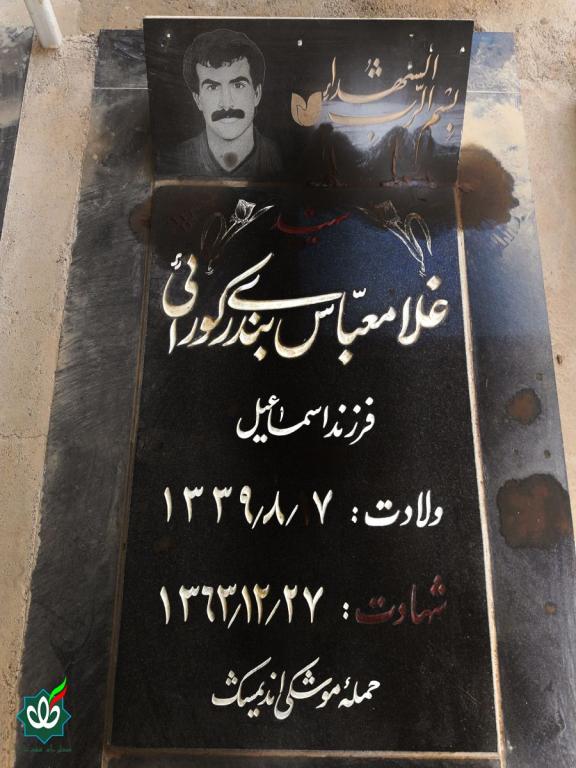 بسم الرب الشهداء
شهید
غلامعباس بندری کورانی
فرزند اسماعیل
ولادت: ۱۳۳۹/۸/۱۷
شهادت: ۱۳۶۳/۱۲/۲۷
حملهٔ موشکی اندیمشک